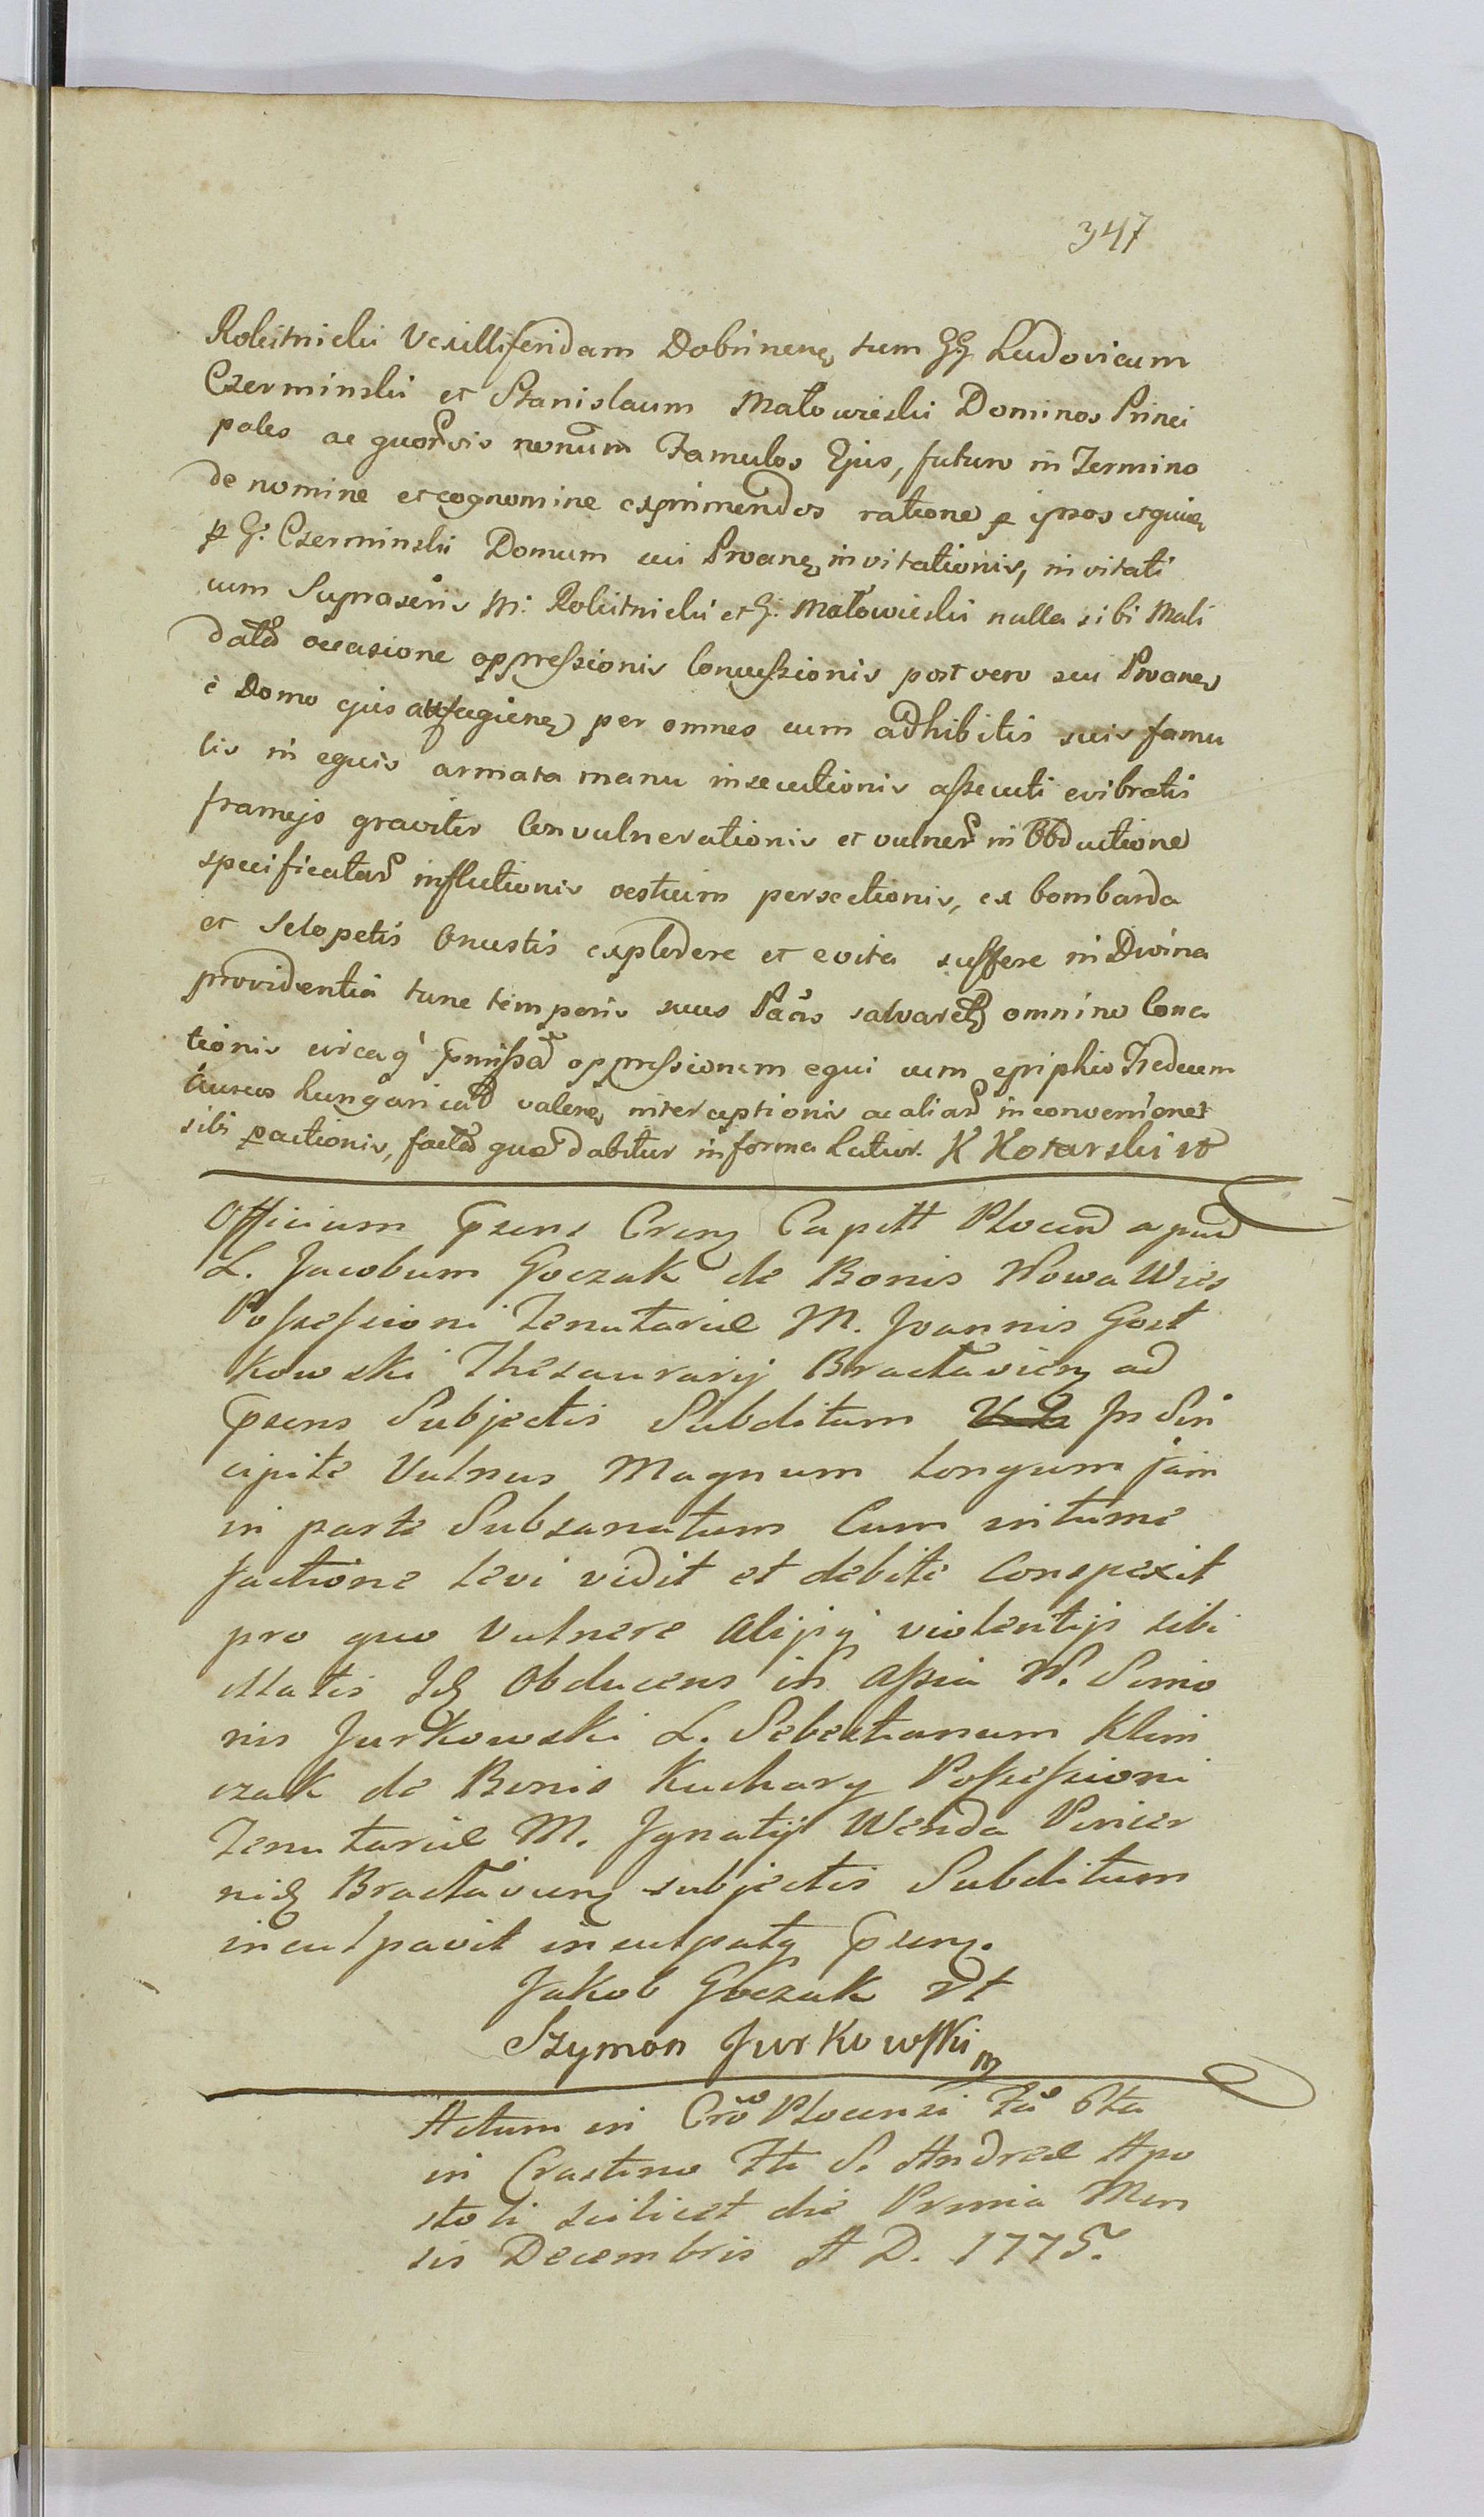 347
Rokitnicki Vexilliferidam Dobrinens tum GG Ludovicum
Czerminski et Stanislaum Małowieski Dominos Princi
pales ac quorvis nonum Famulos Ejus, futuro in Termino
de nomine et cognomine exprimendos ratione p ipsos et quid
p G. Czerminski Domum sui Proane invitationis, invitati
cum Suprascris M: Rokitnicki et G. Małowieski nulla sibi Mali
data occasione oppressionis Concussionis post vero seu Proanes
è Domo ejus aufugiens per omnes cum adhibitis suis famu
lis in equis armata manu insecutionis assecuti evibratis
frameis graviter Convulnerationis et vulner in Obductione
specificatar inflictionis vestium persectionis, ex bombarda
et Sclopetis Onustis explodere et e vita suffere ni Divina
providentia tunc temporis suus Paās salvaret omnino Cona
tionis circaq pmissa oppressionem equi cum epiphio Tredecem
aureos hungaricał valens interceptionis ac aliar inconvenient
sibi pactionis, facta quæ dabitur in forma Latior. K Kotarski w
Officium Psens Crens Capitt Plocen apud
L. Jacobum Goczak de Bonis Nowa Wies
Possessioni Tenutariæ M. Joannis Gost
kowski Thesaurarij Bractaviens ad
Psens Subjectis Subditum In Sin
cipite Vulnus Magnum Longum jam
in parte Subsanatum Cum intume
factione levi vidit et debite Conspexit
pro quo Vulnere Alijsq violentijs sibi
illatis Idē Obducens in Assia N. Simo
nis Jurkowski L. Sebestianum Klim
czak de Bonis Kuchary Possessioni
Tenutariæ M. Ignatij Wenda Pincer
nidę Bractaviens subjectis Subditum
inculpavit inculpatq Psens.
Jakob Goczak vt
Szymon Jurkowski m
Actum in Cro Plocensi Fa 6ta
in Crastino Fti S. Andreæ Apo
stoli scilicet die Prima Men
sis Decembris A D. 1775.